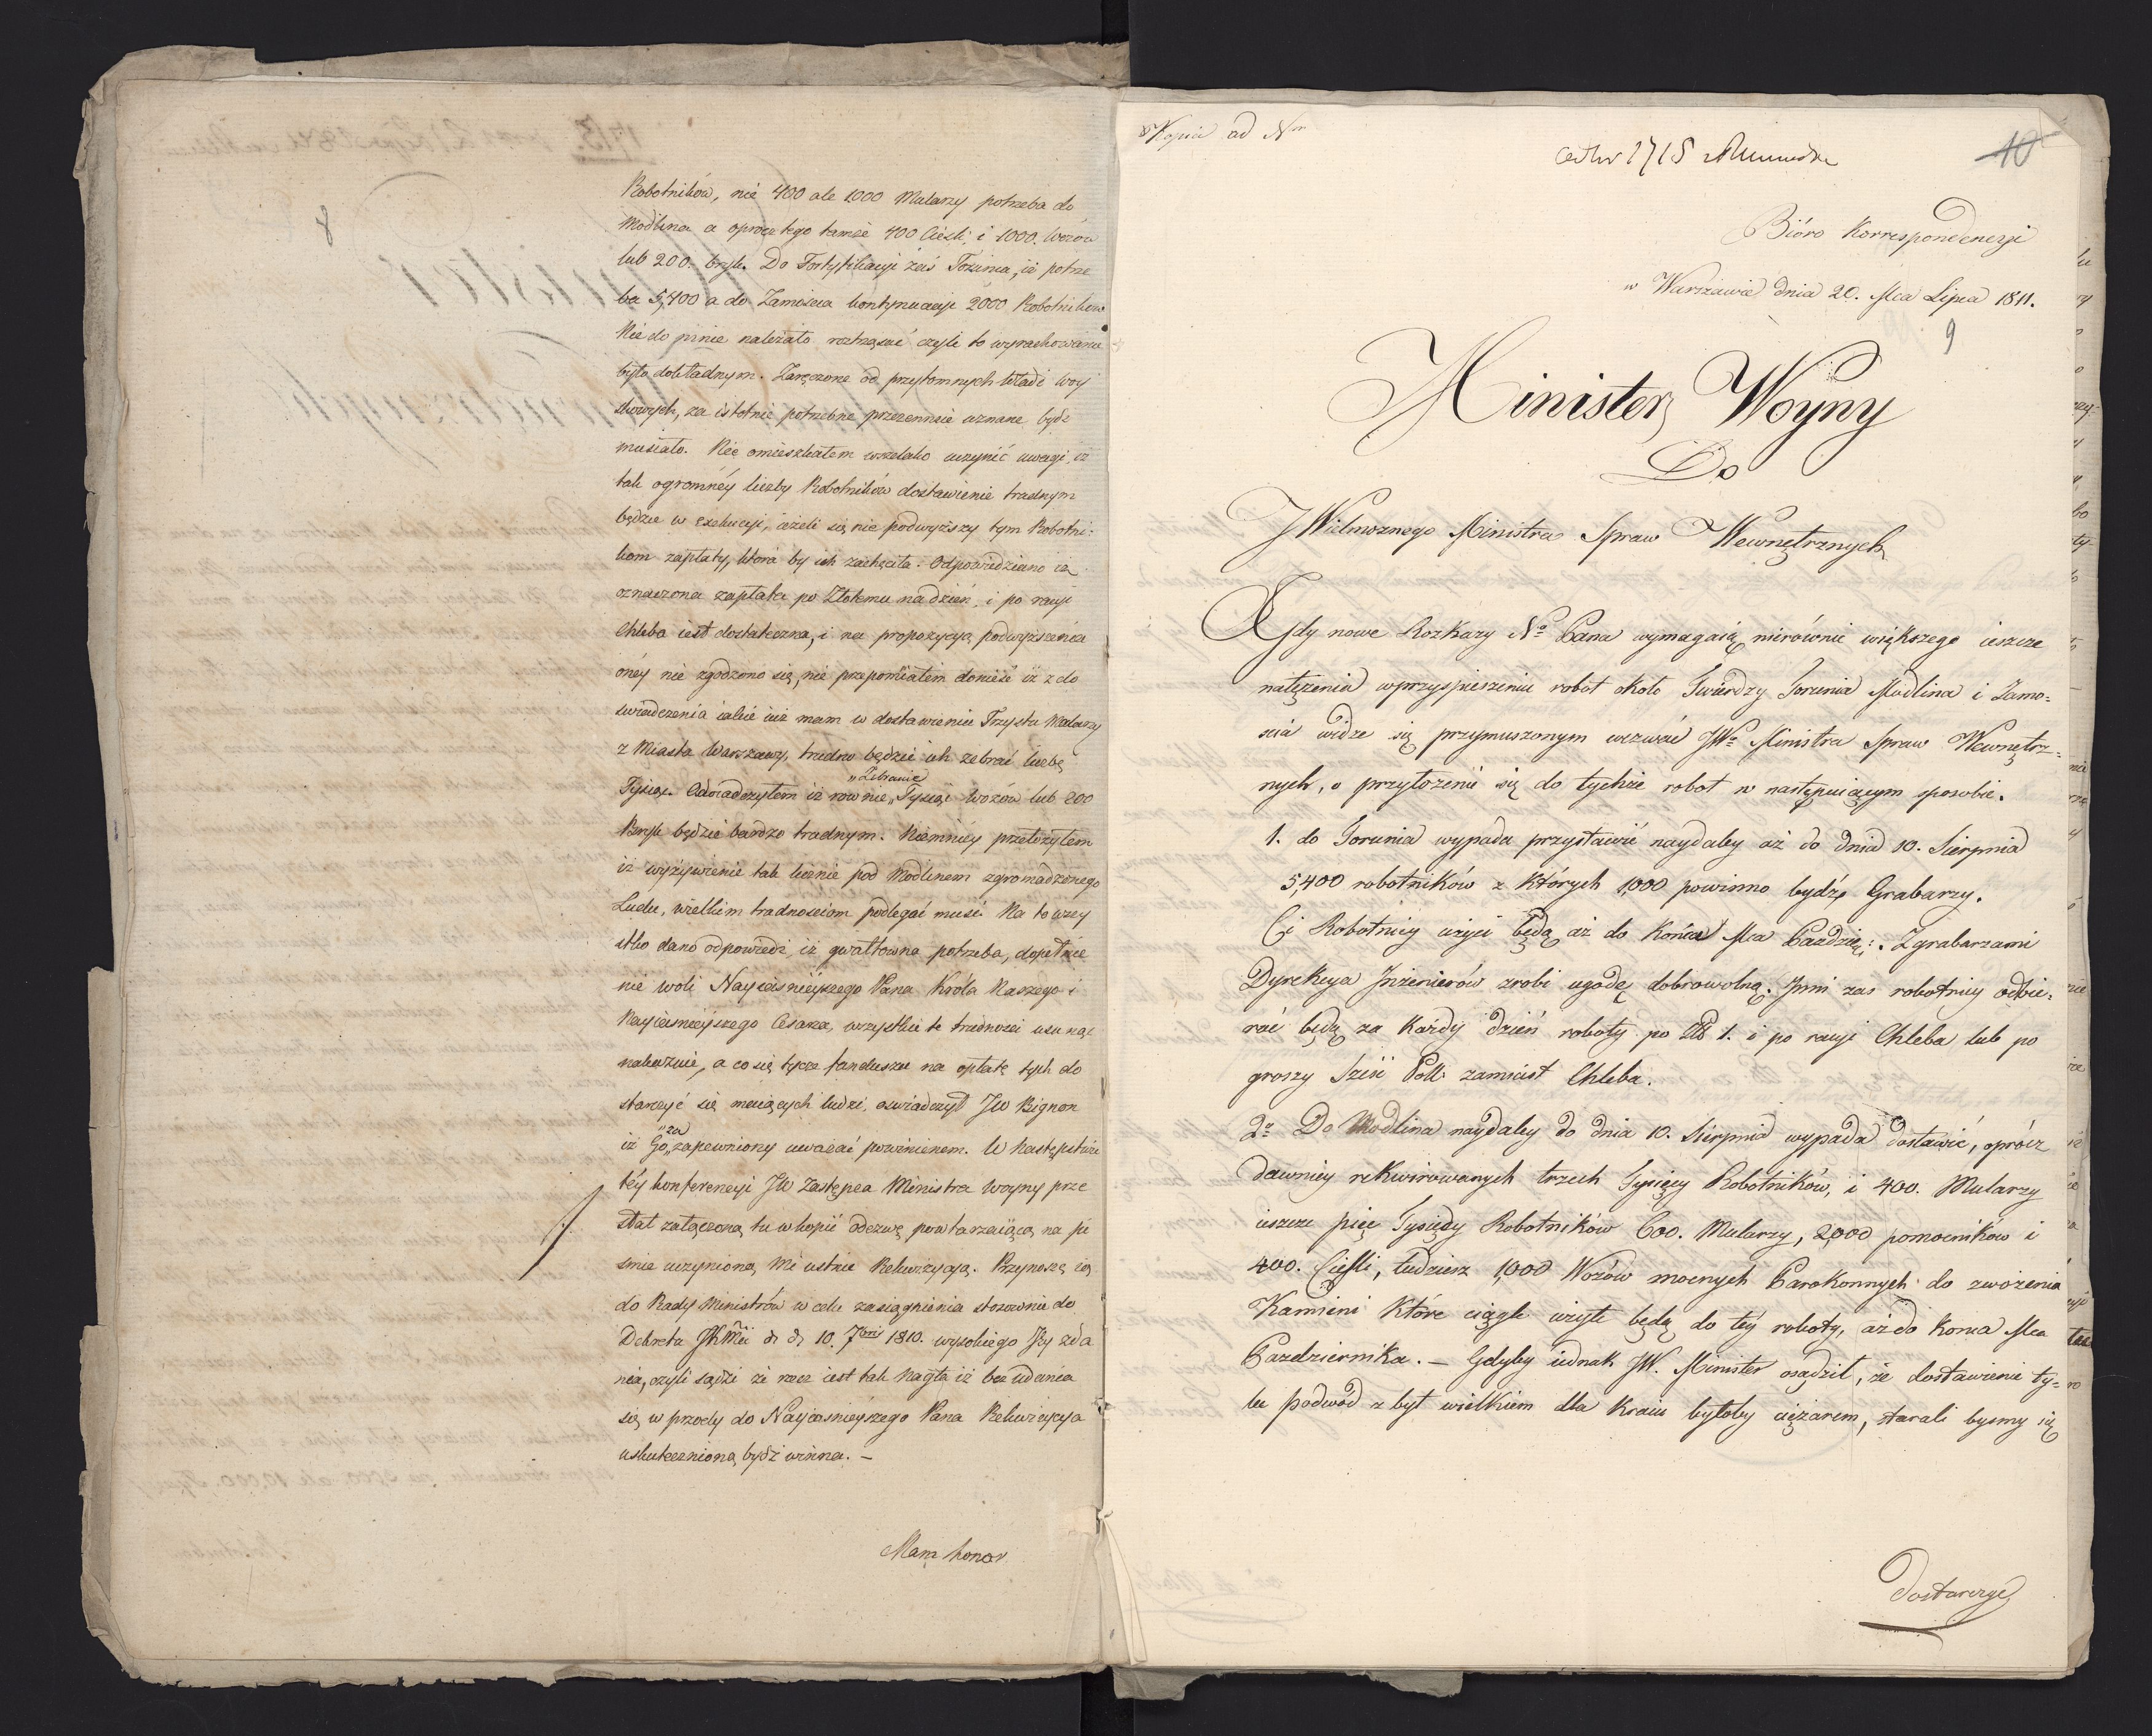 8
Robotników, nie 400 ale 1000 Mularzy potrzeba do
Modlina a oprócz tego tamże 400 Cieśli, i 1000. Wozów
lub 200. bryk. Do Fortyfikacyi zaś Torunia, iż potrze
ba 5,400 a do Zamościa kontynuacyi 2000 Robotników
Nie do mnie należało roztrząsać czyli to wyrachowanie
było dokładnym. Zaręczone od przytomnych Władz Woy
skowych, za istotnie potrzebne przezemnie uznane bydź
musiało. Nie omieszkałem wszelako uczynić uwagi, iż
tak ogromnéy liczby Robotników dostawienie trudnym
będzie w exekucyi, ieżeli się nie podwyższy tym Robotni:
kom zapłaty, która by ich zachęciła. Odpowiedziano iż
oznaczona zapłata po Złotemu na dzień, i po racyi
Chleba iest dostateczna, i na propozycyą podwyższenia
onéy nie zgodzono się, nie przepomniałem donieść iż z do
świadczenia iakie iuż mam w dostawieniu Trzystu Mularzy
z Miasta Warszawy, trudno będzie ich zebrać liczbę
Tysiąc. Oświadczyłem iż równie „Zebranie„ Tysiąc Wozów lub 200
Bryk będzie bardzo trudnym. Niemniéy przełożyłem
iż wyżywienie tak licznie pod Modlinem zgromadzonego
Ludu, wielkim trudnościom podlegać musi. Na to wszy
stko dano odpowiedź, iż gwałtowna potrzeba, dopełnie
nie woli Nayiaśnieyszego Pana Króla Naszego i
Nayiaśnieyszego Cesarza, wszystkie te trudności usunąć
nakazuie, a co się tycze funduszu na opłatę tych do
starczyć się maiących ludzi, oświadczył JW Bignon
iż Go „za„ zapewniony uważać powinienem. W Następstwie
téy konferencyi JW Zastępca Ministra Woyny prze
słał załączoną tu w kopii odezwę powtarzaiącą na pi
śmie uczynioną Mi ustnie Rekwizycyą. Przynoszę ią
do Rady Ministrów w celu zasiągnienia stosownie do
Dekretu JKMci d. d. 10. 7bris 1810. wysokiego Jéy zda
nia, czyli sądzi że rzecz iest tak nagła iż bez udania
się w przody do Nayiaśnieyszego Pana Rekwizycya
uskutecznioną bydź winna. –
Mam honor
Kopia ad Nm
10
Bióro Korrespondencyi
w Warszawie dnia 20. Mca Lipca 1811.
9
Minister Woyny
Do
JWielmożnego Ministra Spraw Wewnętrznych
Gdy nowe Rozkazy No Pana wymagaią nierównie większego ieszcze
natężenia w przyspieszeniu robot około Twierdzy Torunia Modlina i Zamo=
ścia widzę się przymuszonym wezwać JWo Ministra Spraw Wewnętrz=
nych, o przyłożenie się do tychże robot w następuiącym sposobie.
1. do Torunia wypada przystawić naydaley aż do dnia 10. Sierpnia
5,400 robotników z których 1,000 powinno bydź Grabarzy.
Ci Robotnicy użyci będą aż do końca Mca Paździe:. Z grabarzami
Dyrekcya Inżenierów zrobi ugodę dobrowolną. Inni zaś robotnicy odbie=
rać będą za każdy dzień roboty po Zł 1. i po racyi Chleba lub po
groszy Sześć Poll: zamiast Chleba.
2o Do Modlina naydaley do dnia 10. Sierpnia wypada dostawić, oprócz
dawniey rekwirowanych trzech Tysięcy Robotników, i 400. Mularzy
ieszcze pięć Tysięcy Robotników 600. Mularzy, 2,000 pomocników i
400. Cieśli, tudzież 1,000 Wozów mocnych Parokonnych do zwożenia
Kamieni które ciągle użyte będą do téy roboty, aż do końca Mca
Października. – Gdyby iednak JW. Minister osądził, że dostawienie ty=
lu podwód zbyt wielkiem dla kraiu byłoby ciężarem, starali bysmy się
dostarczyć